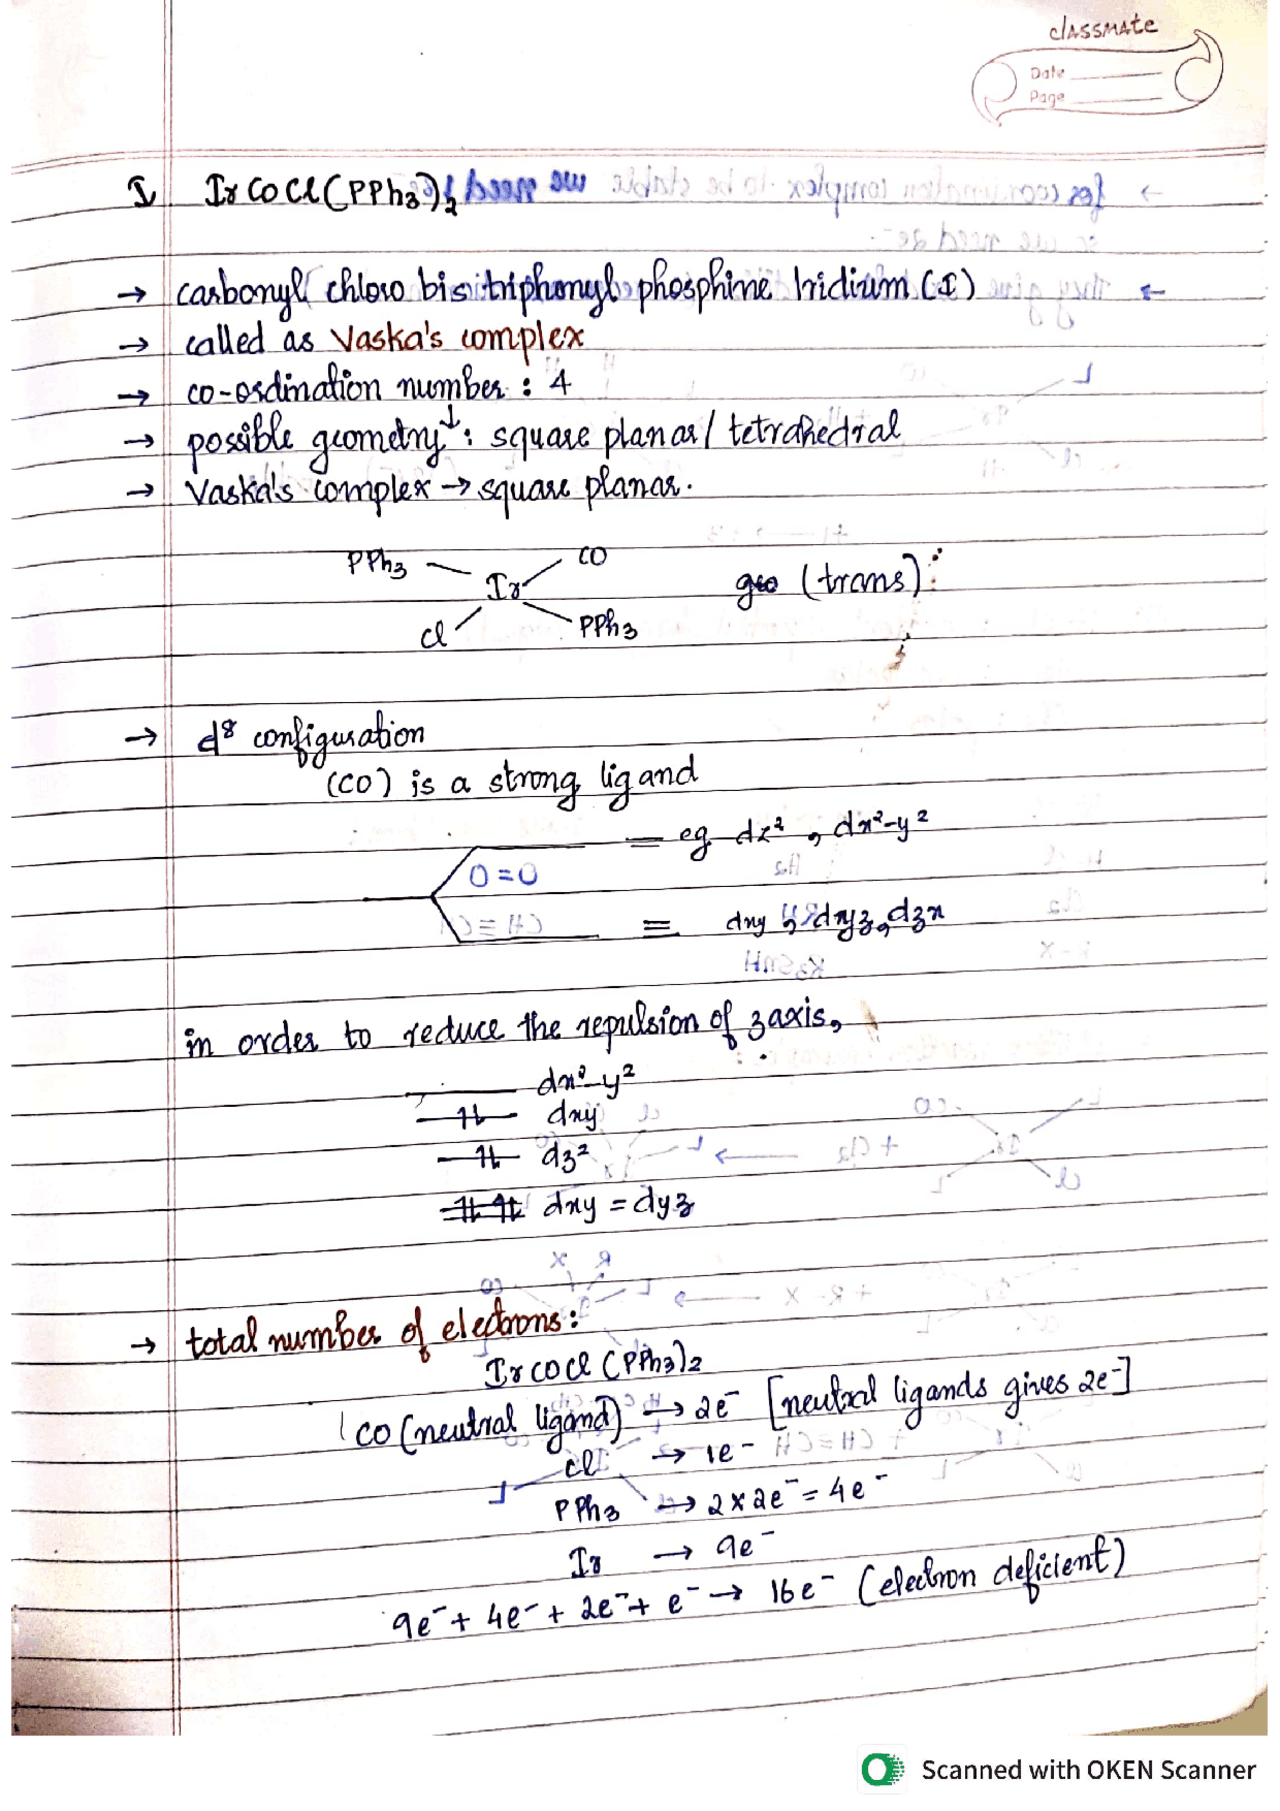 classmate
Date
Page
I IrCOCl(PPh₃)₂
→ carbonyl chloro bis triphenyl phosphine Iridium (I)
→ called as Vaska's complex
→ co-ordination number : 4
→ possible geometry : square planar / tetrahedral
→ Vaska's complex → square planar.
PPh₃ CO
Ir (trans)
Cl PPh₃
→ d⁸ configuration
(CO) is a strong ligand
eg dz², dx²-y²
dxy, dyz, dzx
in order to reduce the repulsion of z axis,
dx²-y²
dxy
dz²
dxy = dyz
→ total number of electrons:
IrCOCl(PPh₃)₂
CO (neutral ligand) → 2e⁻ [neutral ligands gives 2e⁻]
Cl → 1e⁻
PPh₃ → 2×2e⁻ = 4e⁻
Ir → 9e⁻
9e⁻ + 4e⁻ + 2e⁻ + e⁻ → 16e⁻ (electron deficient)
Scanned with OKEN Scanner